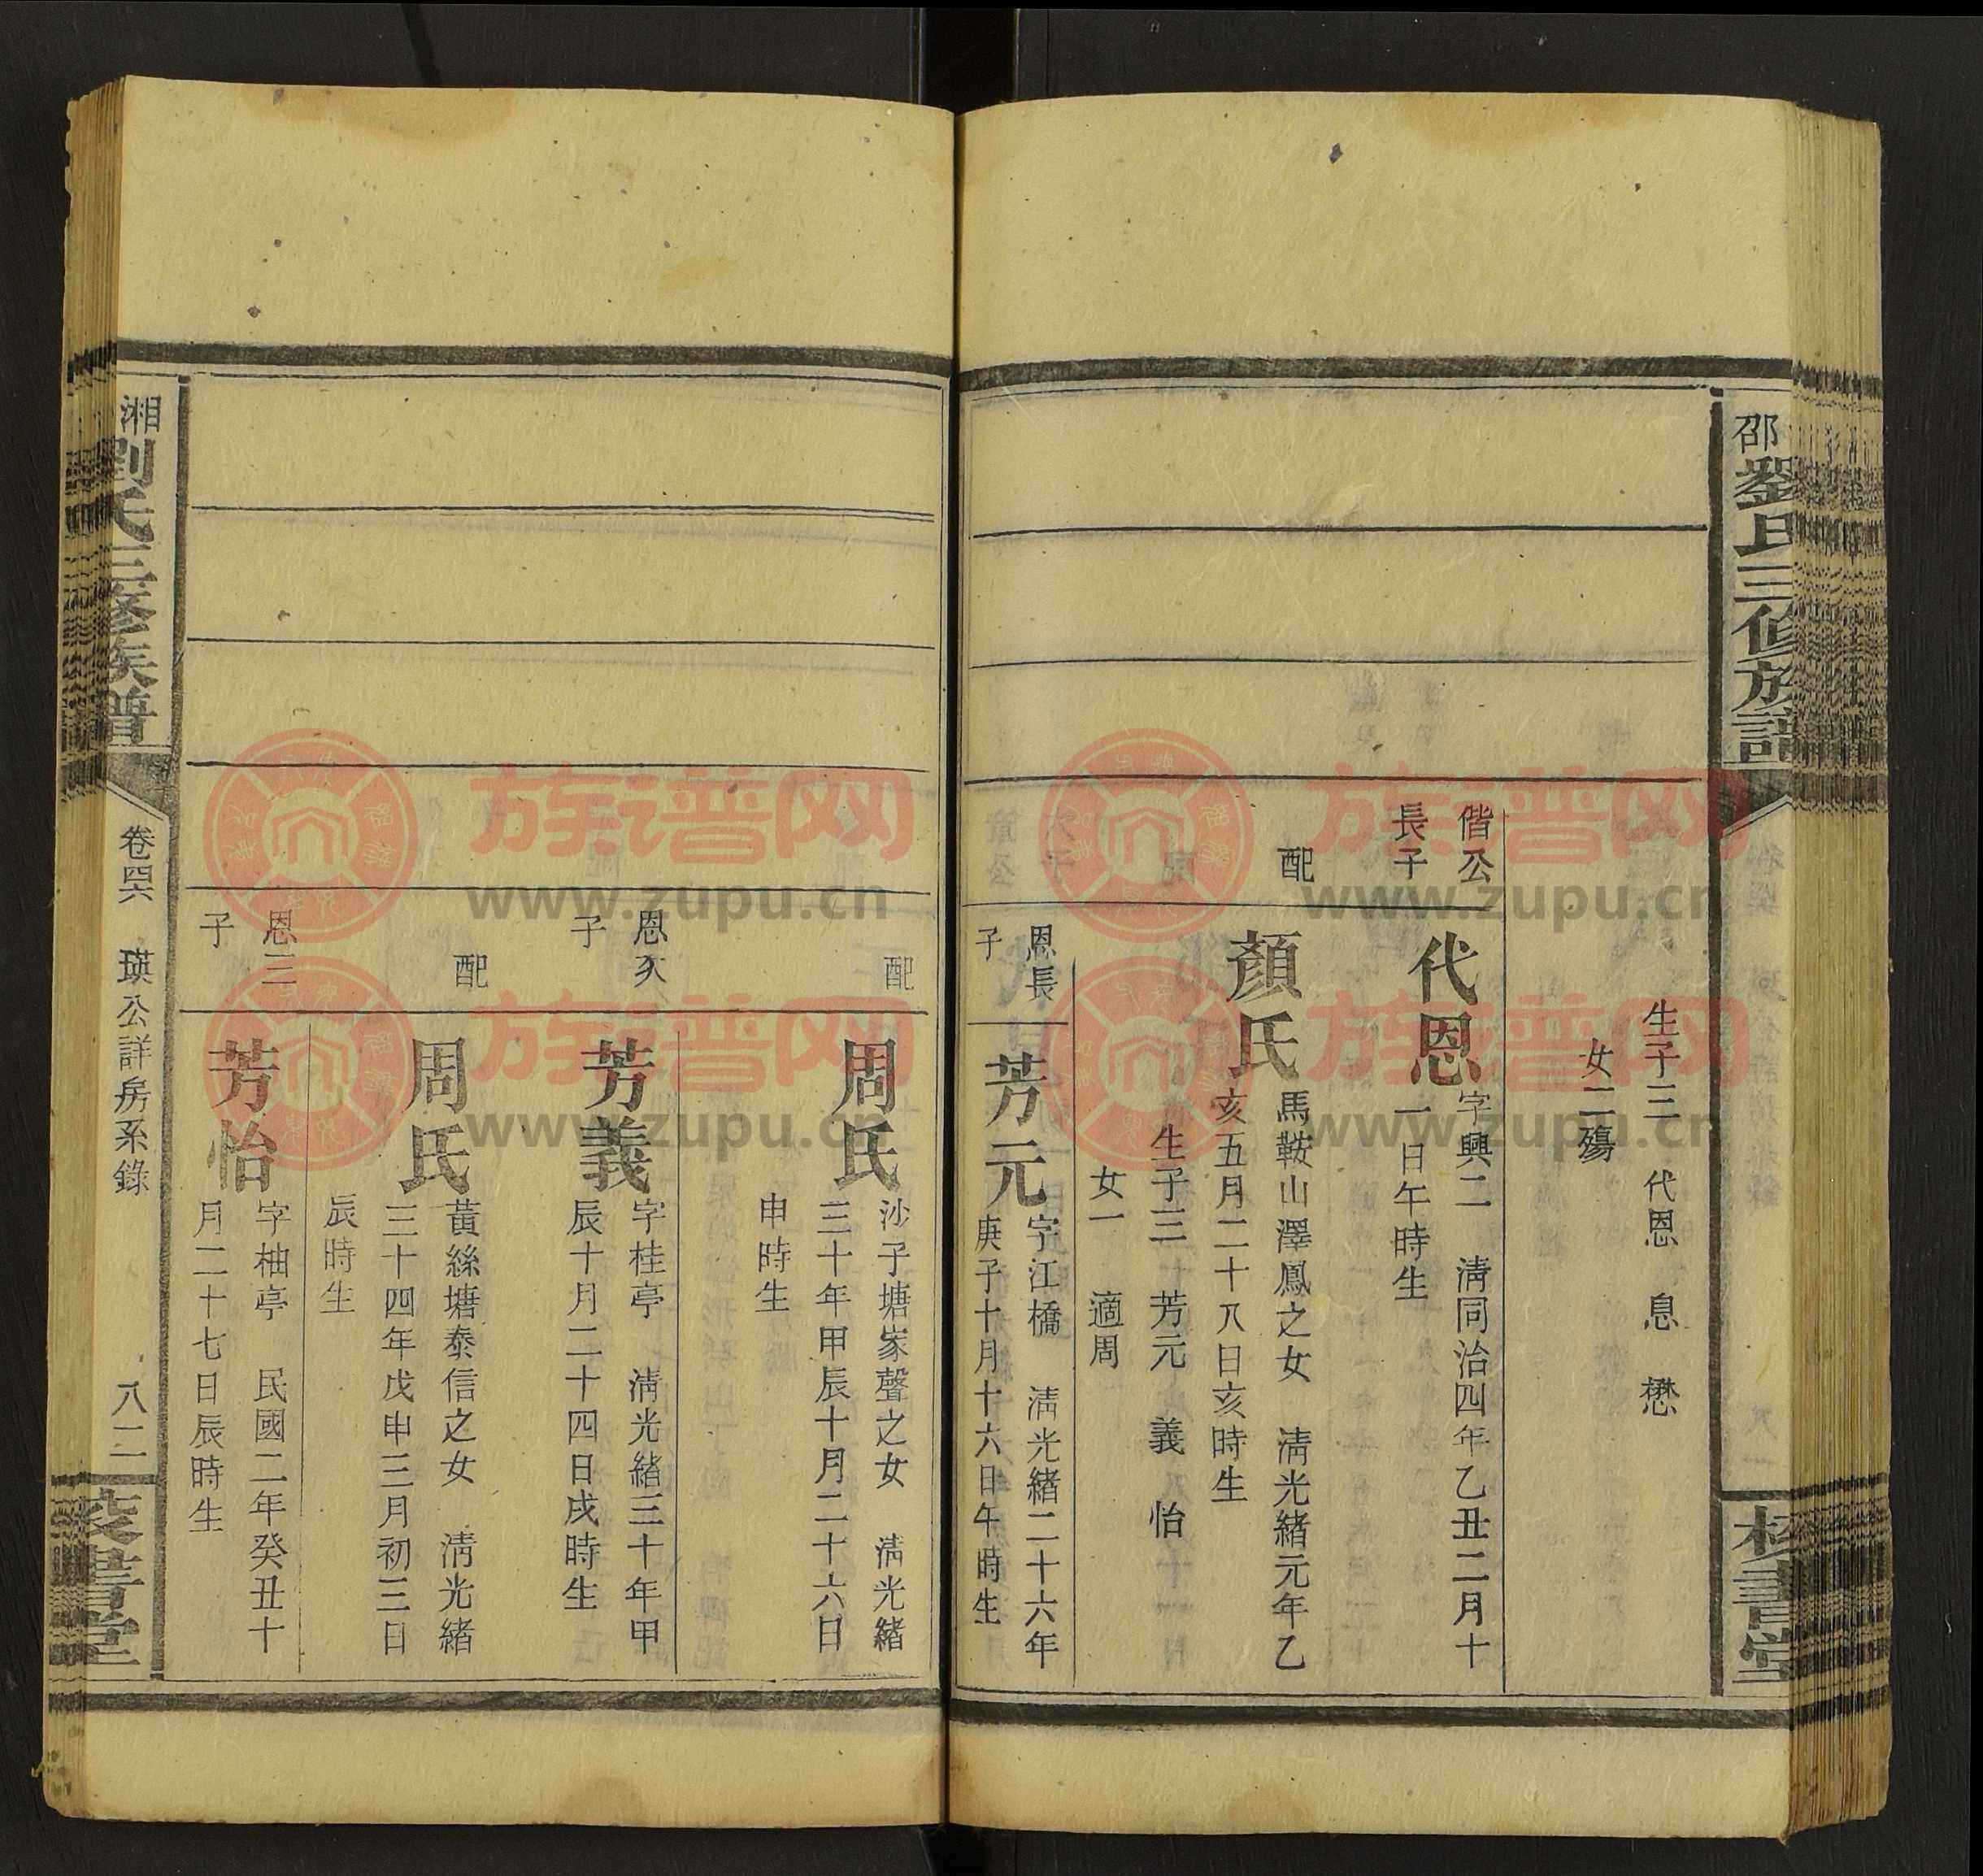 邵劉氏三修族譜
校書堂
生子三　代恩　息　懋
女二殤
偕公
長子
代恩
字興二　淸同治四年乙丑二月十
一日午時生
配
顏氏
馬鞍山澤鳳之女　淸光緒元年乙
亥五月二十八日亥時生
生子三　芳元　義　怡
女一　適周
恩長
子
芳元
字江橋　淸光緒二十六年
庚子十月十六日午時生
配
周氏
沙子塘家聲之女　淸光緒
三十年甲辰十月二十六日
申時生
恩次
子
芳義
字桂亭　淸光緒三十年甲
辰十月二十四日戌時生
配
周氏
黃絲塘泰信之女　淸光緒
三十四年戊申三月初三日
辰時生
恩三
子
芳怡
字柚亭　民國二年癸丑十
月二十七日辰時生
湘劉氏三修族譜
卷四六　瑛公詳房系錄　八二
族谱网
www.zupu.cn
族谱网
www.zupu.cn
族谱网
www.zupu.cn
族谱网
www.zupu.cn